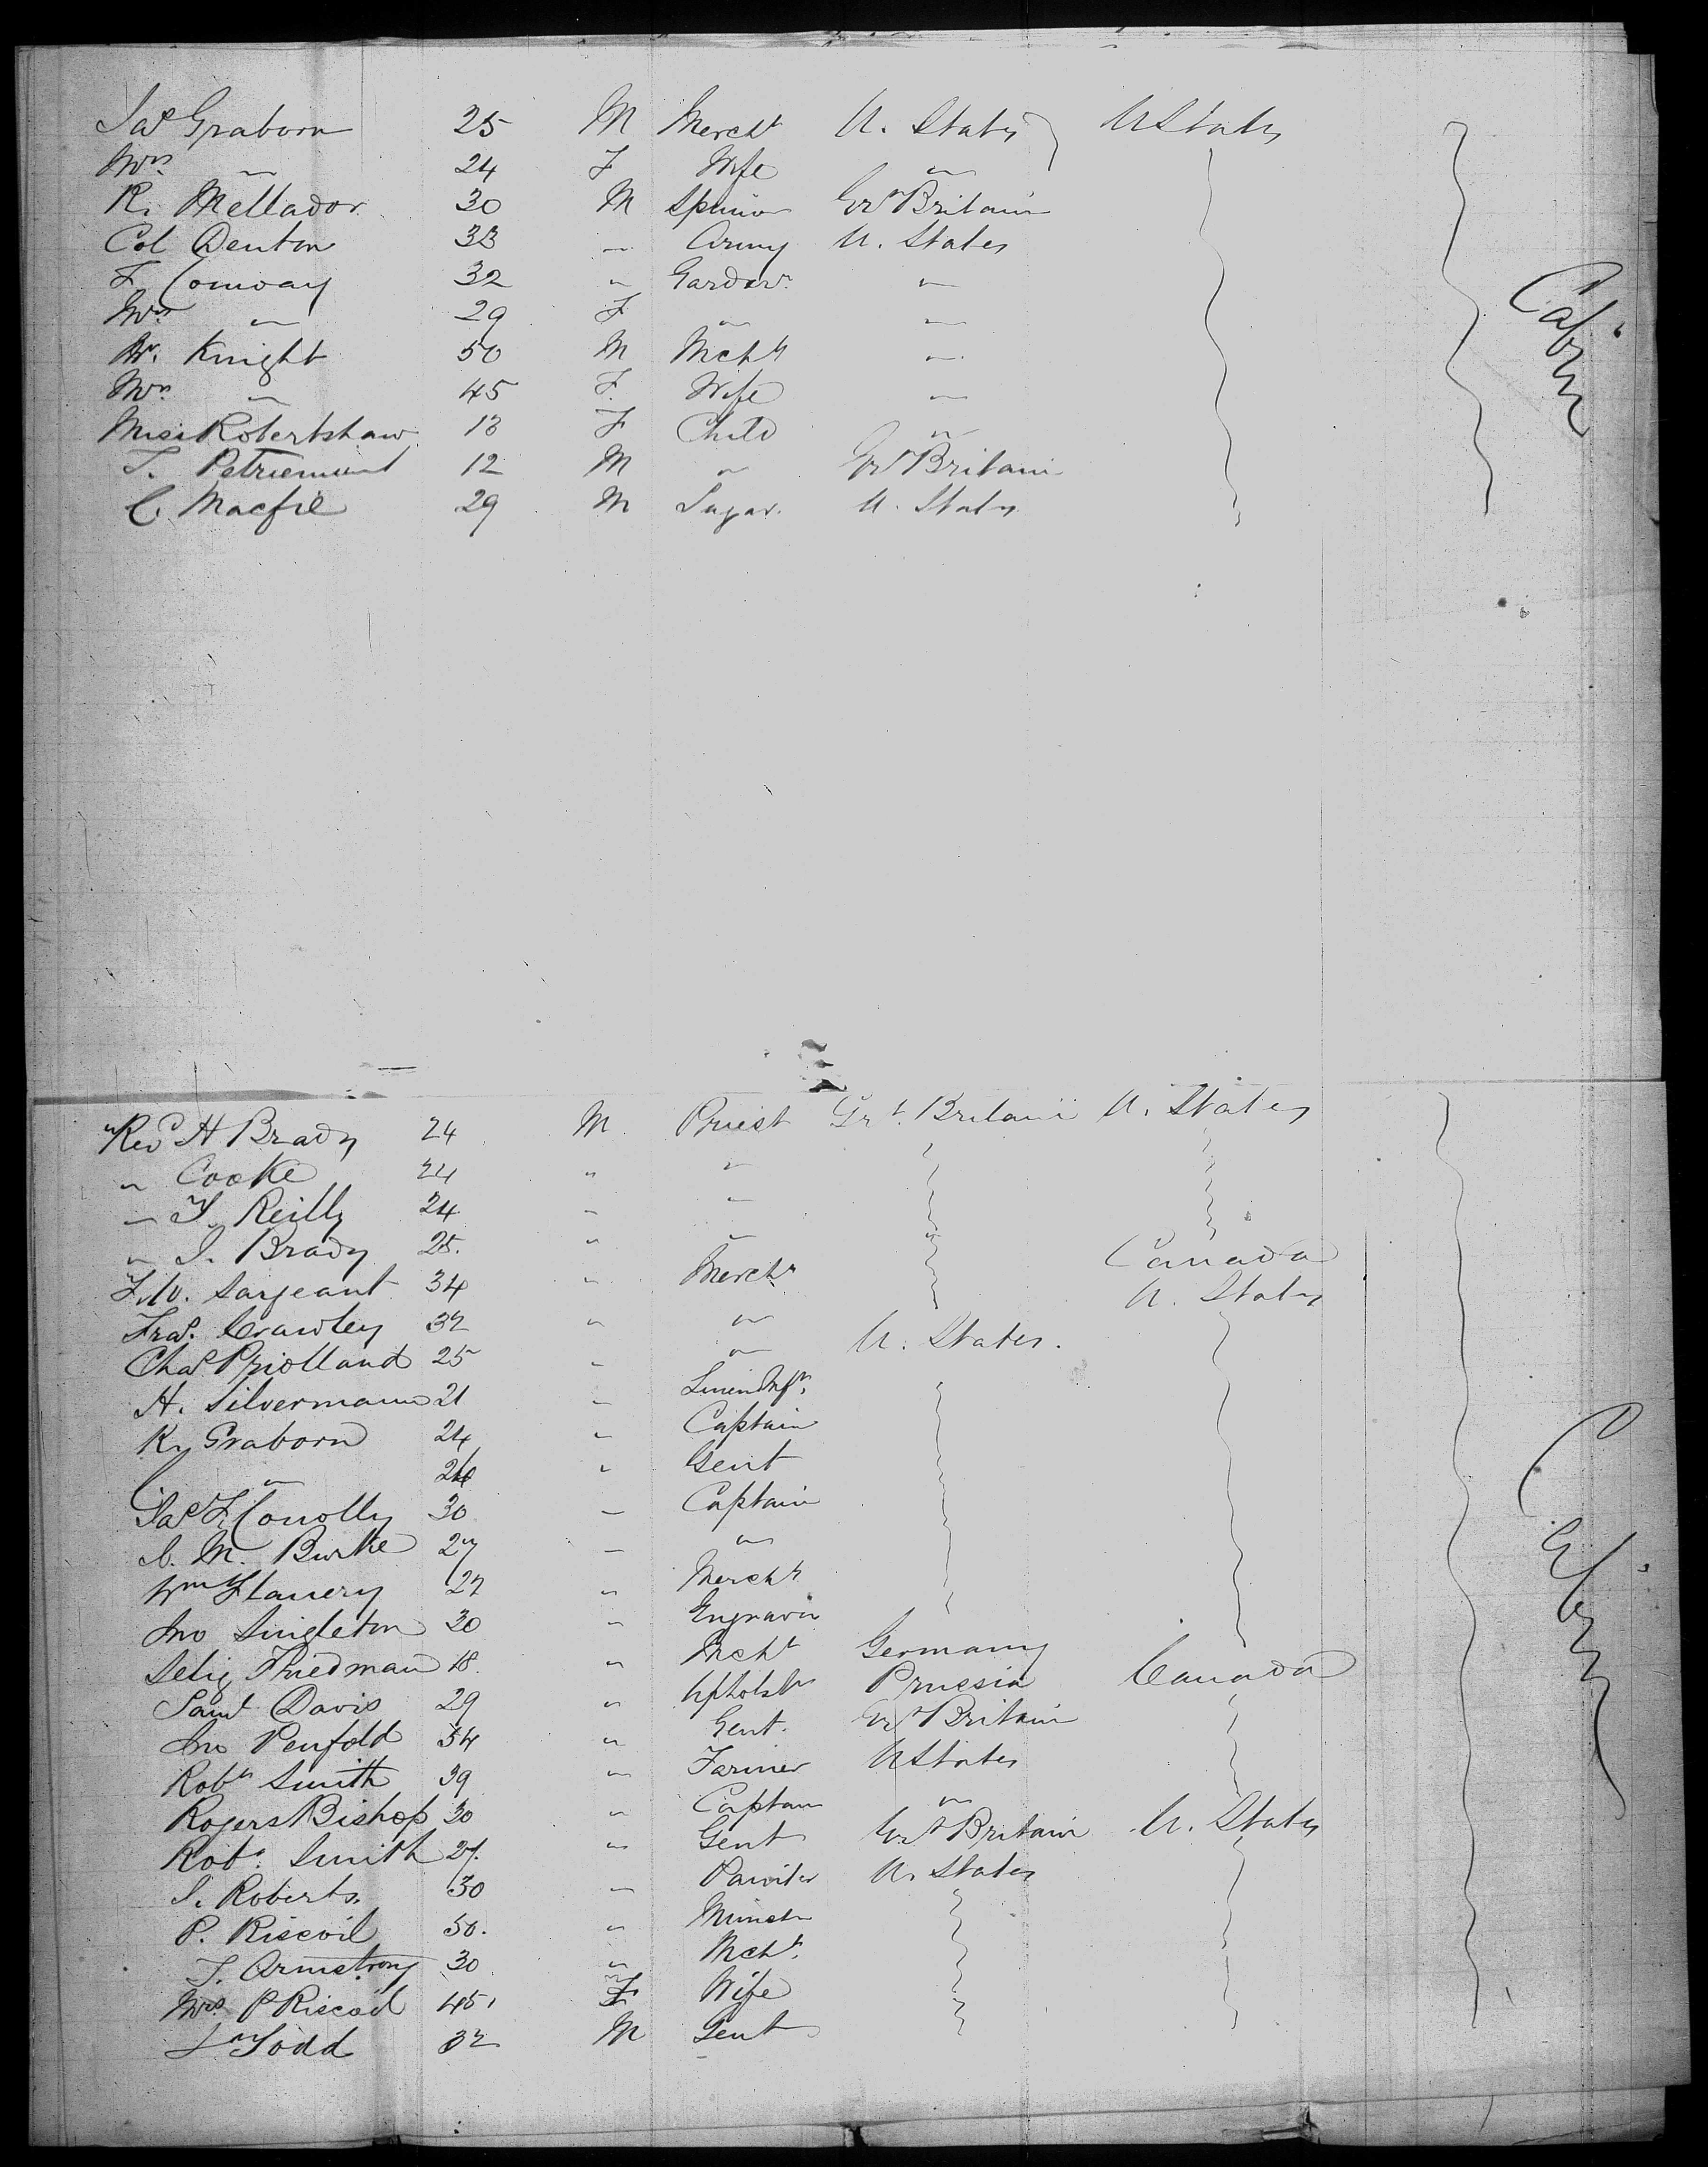 Jas Graborn 25 M Mercht U. States U States
Mrs " 24 F Wife "
R. Mellador 30 M Spinner Grt Britain
Col Denton 33 " Army U. States
F Conway 32 " Gardnr "
Mrs " 29 F " "
W. Knight 50 M Mcht "
Mrs " 45 F. Wife "
Miss Robertshaw 13 F Child "
T. 12 M " Grt Britain
C. Macfie 29 M Sugar U. States
Cabin
Revd H Brady 24 M Priest Grt. Britain U. States
" Cooke 24 " "
" T. Reilly 24 " "
" J. Brady 25. " " Canada
F. W. Sargeant 34 " Mercht U. States
Fras. Crawley 32 " "
Chas Priolland 25 " " U. States.
H. Silvermann 21 " Linen Mfr.
R. Graborn 24 " Captain
C " 24 " Gent
Jas F. Conolly 30 " Captain
C. M. Burke 27 " "
Wm Flanery 27 " Mercht
Jno Singleton 30 " Engraver
Selig Friedman 18. " Mcht Germany
Saml Davis 29 " Upholstr Prussia Canada
Jno Penfold 34 " Gent. Grt Britain
Robt Smith 39 " Farmer U States
Rogers Bishop 30 " Captain "
Robt. Smith 27. " Gent Grt Britain U. States
J. Roberts. 30 " Painter U. States
P. Riscoil 50. " Ministr
T. Armstrong 30 " Mcht.
Mrs P Riscoil 45. F Wife
Todd 32 M Gent
Cabin